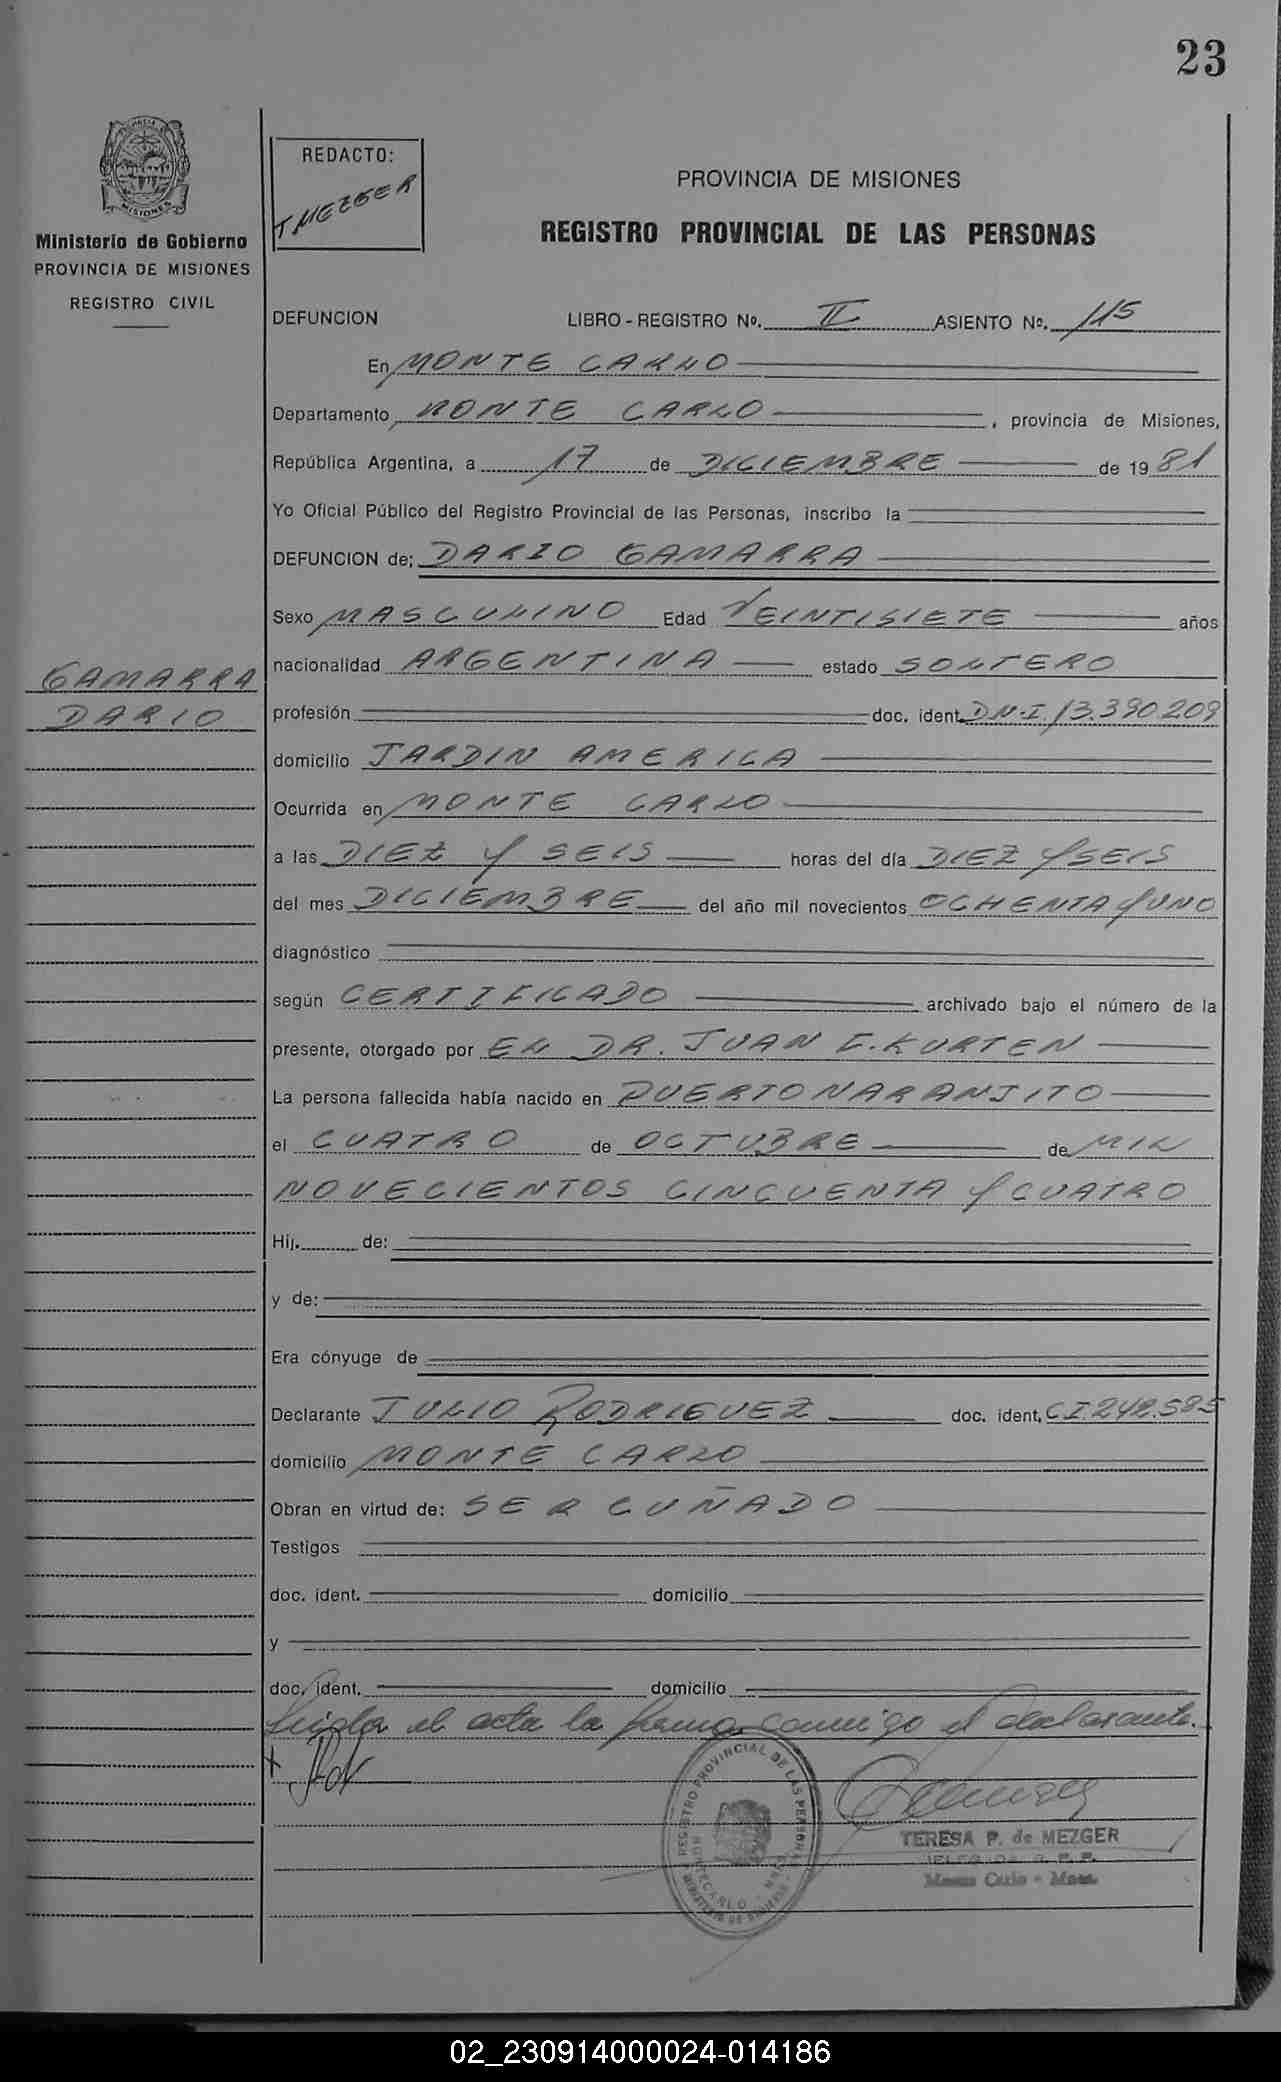 23
MISIONES
Ministerio de Gobierno
PROVINCIA DE MISIONES
REGISTRO CIVIL
REDACTO:
T MEZGER
PROVINCIA DE MISIONES
REGISTRO PROVINCIAL DE LAS PERSONAS
DEFUNCION LIBRO - REGISTRO Nº. II ASIENTO Nº. 115
En MONTE CARLO
Departamento MONTE CARLO, provincia de Misiones,
República Argentina, a 17 de DICIEMBRE de 1981
Yo Oficial Público del Registro Provincial de las Personas, inscribo la
DEFUNCION de: DARIO GAMARRA
Sexo MASCULINO Edad VEINTISIETE años
GAMARRA
DARIO
nacionalidad ARGENTINA estado SOLTERO
profesión doc. ident. D.N.I. 13.390.209
domicilio JARDIN AMERICA
Ocurrida en MONTE CARLO
a las DIEZ Y SEIS horas del día DIEZ Y SEIS
del mes DICIEMBRE del año mil novecientos OCHENTA Y UNO
diagnóstico
según CERTIFICADO archivado bajo el número de la
presente, otorgado por EL DR. JUAN E. KURTEN
La persona fallecida había nacido en PUERTO NARANJITO
el CUATRO de OCTUBRE de MIL
NOVECIENTOS CINCUENTA Y CUATRO
Hij. de:
y de:
Era cónyuge de
Declarante JULIO RODRIGUEZ doc. ident. C.I. 242.585
domicilio MONTE CARLO
Obran en virtud de: SER CUÑADO
Testigos
doc. ident. domicilio
y
doc. ident. domicilio
Leída el acta la firma conmigo el declarante.
REGISTRO PROVINCIAL DE LAS PERSONAS
MONTECARLO
TERESA P. de MEZGER
Monte Carlo - Mnes.
02_230914000024-014186